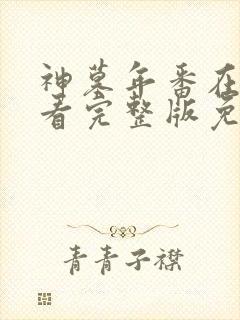 神墓年番在
看完整版免
青青子襟